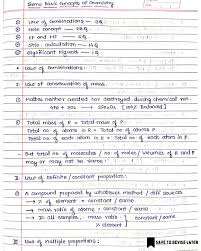 Some Basic Concepts of Chemistry
① Law of Combinations — 2Q
② Mole concept —
③ EF and MF —
④ Stoi. calculation — 4Q
⑤ Significant Figures — 1Q
* Law of Combinations:
I Law of conservation of mass:
① Matter neither created nor destroyed during chemical rxn.
② Total mass of R = Total mass of P
Total no. of atoms in R = Total no. of atoms P.
Total no. of each atom in R = Total no. of each atom in P.
- But total no. of molecules / no. of moles / volumes of R and P
may or may not be same.
II Law of definite / constant proportion:
① A compound prepared by whatsoever method / diff sources
→ % of element = constant / same.
→ mass ratio of atoms = constant / same.
→ In all samples, mass ratio = constant / same
% element
III Law of multiple proportions:
SAVE TO REVISE LATER